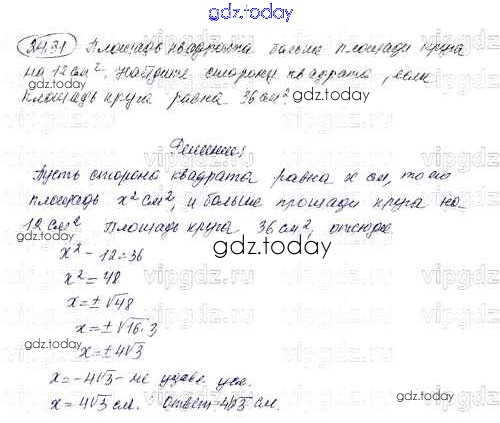 gdz.today
24.31 Площадь квадрата больше площади круга
на 12 см². Найдите сторону квадрата, если
площадь круга равна 36 см².
gdz.today
Решение:
Пусть сторона квадрата равна x см, то его
площадь x² см², и больше площади круга на
12 см². Площадь круга 36 см², отсюда:
gdz.today
x² - 12 = 36
x² = 48
x = ± √48
x = ± √16·3
x = ± 4√3
x = -4√3 - не удовл. усл.
x = 4√3 см. Ответ: 4√3 см.
gdz.today
vipgdz